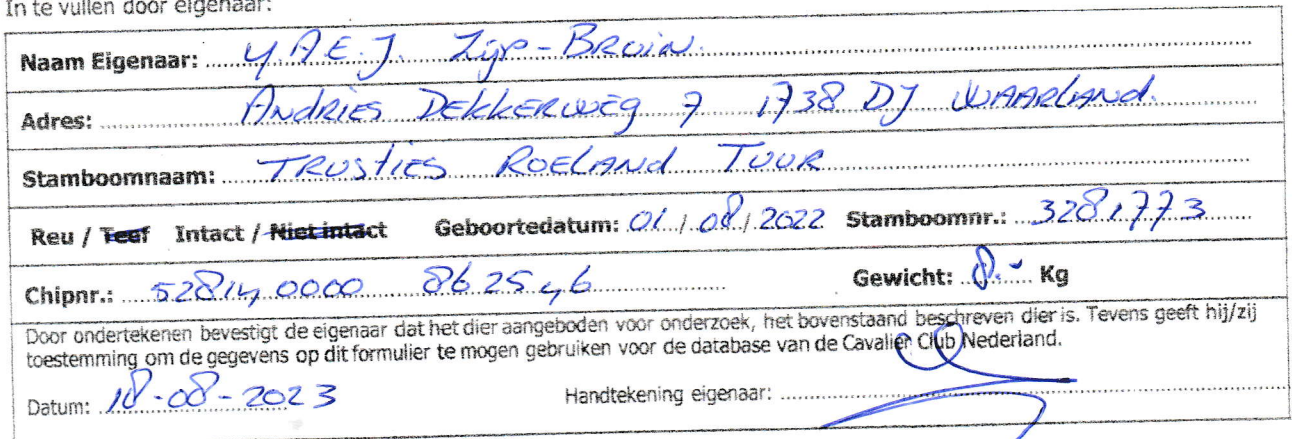 In te vullen door eigenaar:
Naam Eigenaar: Y.A.E.J. Zijp-Bruin.
Adres: Andries Dekkerweg 7 1738 DJ Waarland.
Stamboomnaam: Trusties Roeland Tuur
Reu / Teef Intact / Niet intact Geboortedatum: 01 / 08 / 2022 Stamboomnr.: 3281773
Chipnr.: 528140000 862546 Gewicht: 8.- Kg
Door ondertekenen bevestigt de eigenaar dat het dier aangeboden voor onderzoek, het bovenstaand beschreven dier is. Tevens geeft hij/zij
toestemming om de gegevens op dit formulier te mogen gebruiken voor de database van de Cavalier Club Nederland.
Datum: 18-08-2023 Handtekening eigenaar: